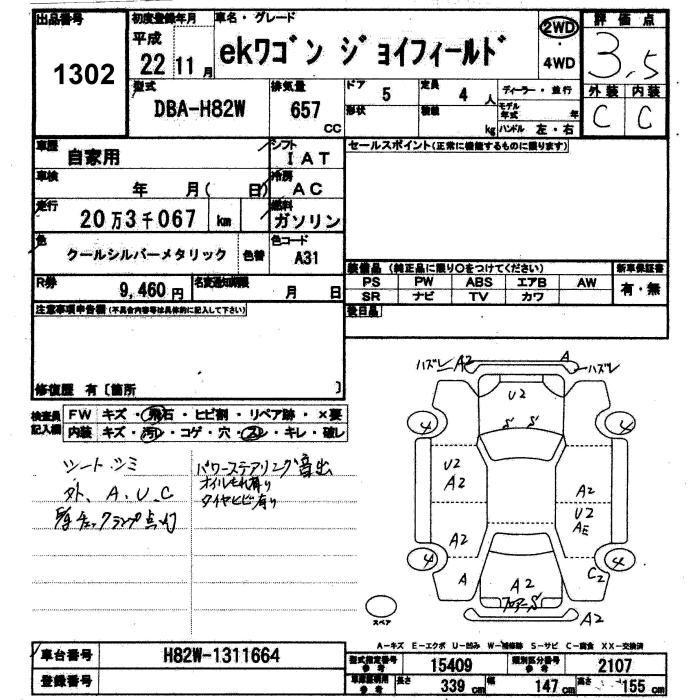 出品番号
1302
初度登録年月
平成
22 11月
車名・グレード
ekワゴン ジョイフィールド
2WD
4WD
評価点
3.5
外装 内装
C C
型式
DBA-H82W
排気量
657
CC
ドア
5
定員
4 人
形状
積載
kg
ディーラー・並行
モデル年式 年
ハンドル 左・右
車歴
自家用
シフト
IAT
車検
年 月( 日)
冷房
AC
走行
20万3千067 km
燃料
ガソリン
色
クールシルバーメタリック
色替
色コード
A31
R券
9,460円
名変通知期限
月 日
セールスポイント(正常に機能するものに限ります)
装備品 (純正品に限り○をつけてください)
新車保証書
有・無
PS PW ABS エアB AW
SR ナビ TV カワ
後日品
注意事項申告欄(不具合内容等は具体的に記入して下さい)
修復歴 有〔箇所 〕
検査員記入欄
FW キズ・飛石・ヒビ割・リペア跡・×要
内装 キズ・汚レ・コゲ・穴・スレ・キレ・破レ
シート、シミ
外、A、U、C
パワーステアリング音出
オイルもれ有り
タイヤヒビ有り
ハズレ A2 A ハズレ
U2
S S
4 4
U2
A2
A2
U2
AE
A2
4 4
A C2
A2
A2
スペア
A-キズ E-エクボ U-凹み W-補修跡 S-サビ C-腐食 XX-交換済
車台番号
H82W-1311664
登録番号
型式指定番号 参考
15409
類別区分番号 参考
2107
長さ 339 cm
幅 147 cm
高さ 155 cm